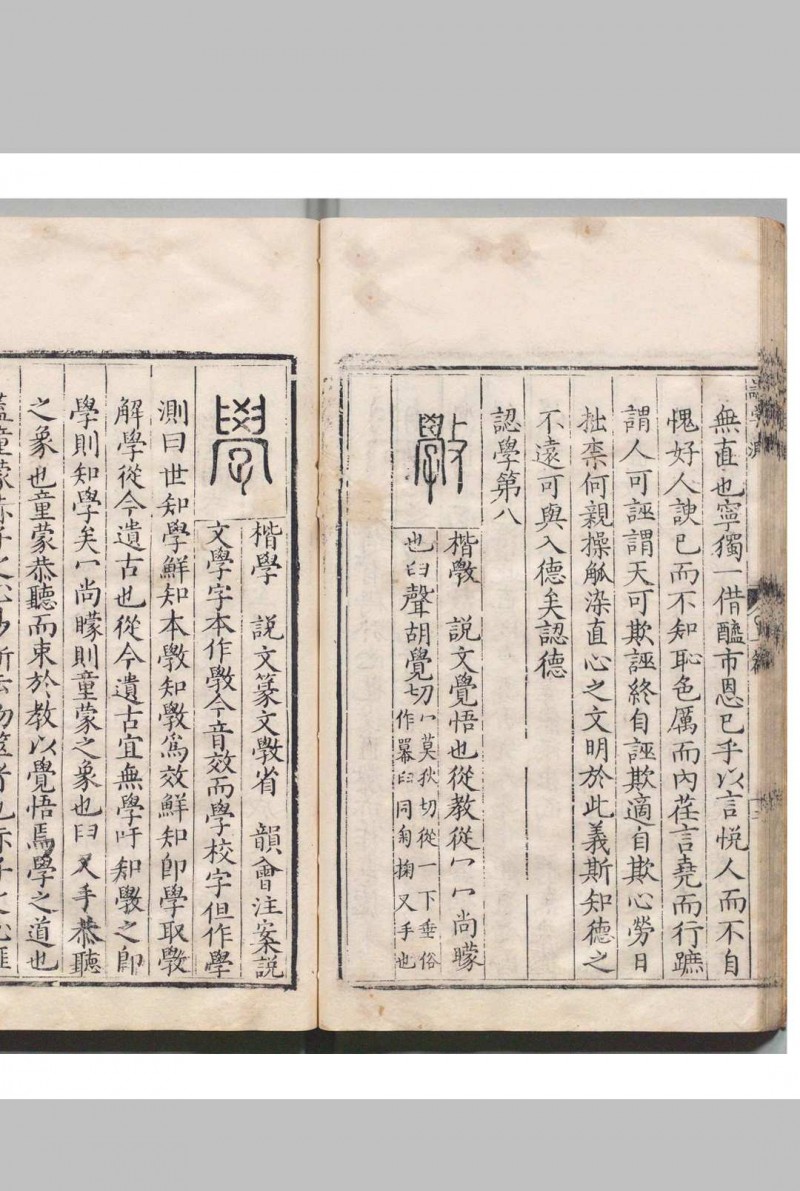 無直也寧獨一借醯市恩已乎以言悅人而不自
愧好人諛已而不知恥色厲而內荏言堯而行蹠
謂人可誣謂天可欺誣終自誣欺適自欺心勞日
拙柰何親操觚染直心之文明於此義斯知德之
不遠可與入德矣認德
認學第八
斆
楷斆 說文覺悟也從教從冖冖尚矇
也𦥑聲胡覺切
冖莫狄切從一下垂俗
作羃𦥑同匊掬叉手也
學
楷學 說文篆文斆省 韻會注案說
文學字本作斆今音效而學校字但作學
測曰世知學鮮知本斆知斆爲效鮮知卽學取斆
解學從今遺古也從今遺古宜無學吁知斆之卽
學則知學矣冖尚矇則童蒙之象也𦥑叉手恭聽
之象也童蒙恭聽而束於教以覺悟焉學之道也